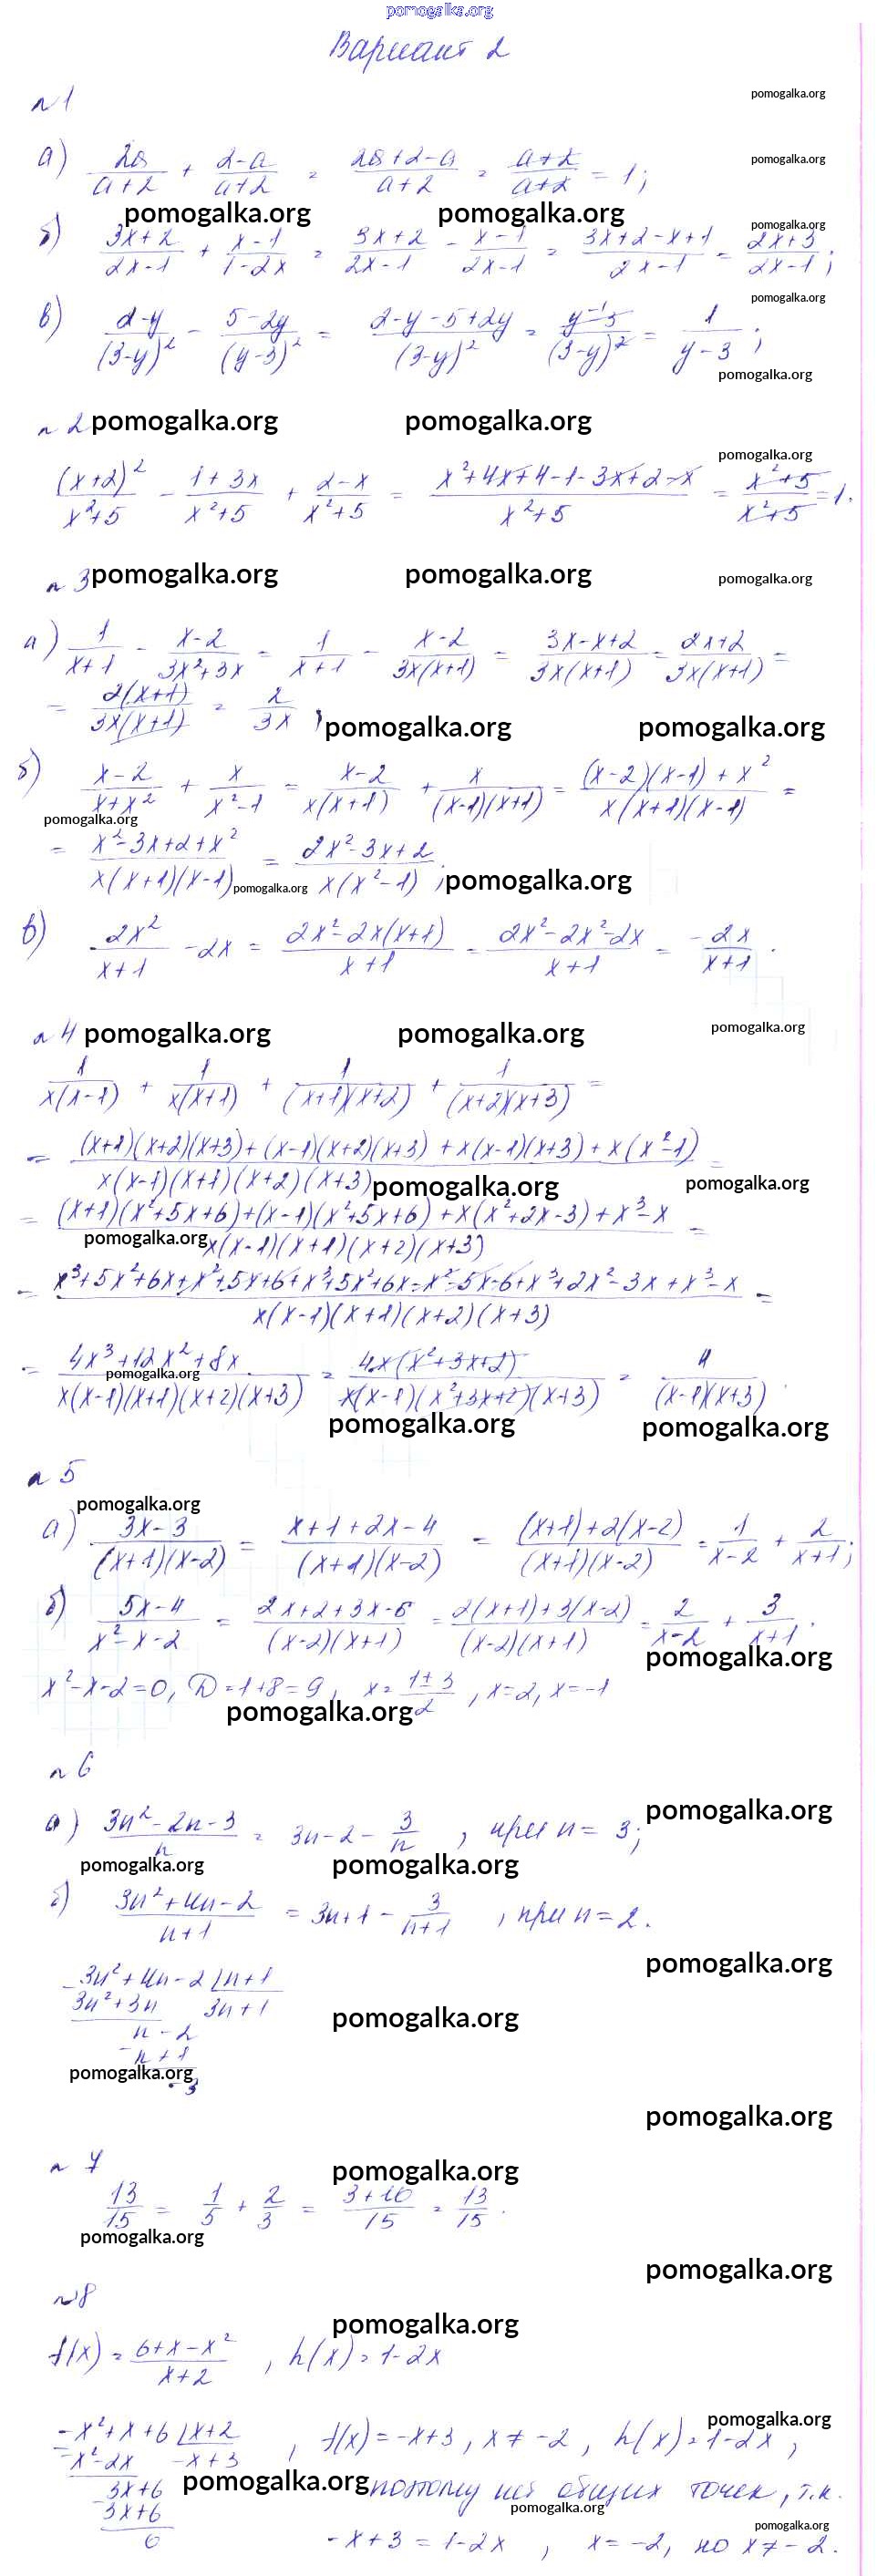 pomogalka.org
Вариант 2
n 1 pomogalka.org
а) 2a/(a+2) + (2-a)/(a+2) = (2a+2-a)/(a+2) = (a+2)/(a+2) = 1; pomogalka.org
pomogalka.org pomogalka.org pomogalka.org
б) (3x+2)/(2x-1) + (x-1)/(1-2x) = (3x+2)/(2x-1) - (x-1)/(2x-1) = (3x+2-x+1)/(2x-1) = (2x+3)/(2x-1);
pomogalka.org
в) (2-y)/(3-y)² - (5-2y)/(y-3)² = (2-y-5+2y)/(3-y)² = (y-3)/(3-y)² = 1/(y-3);
pomogalka.org
n 2 pomogalka.org pomogalka.org
pomogalka.org
(x+2)²/(x²+5) - (1+3x)/(x²+5) + (2-x)/(x²+5) = (x²+4x+4-1-3x+2-x)/(x²+5) = (x²+5)/(x²+5) = 1.
n 3 pomogalka.org pomogalka.org pomogalka.org
а) 1/(x+1) - (x-2)/(3x²+3x) = 1/(x+1) - (x-2)/(3x(x+1)) = (3x-x+2)/(3x(x+1)) = (2x+2)/(3x(x+1)) =
= 2(x+1)/(3x(x+1)) = 2/(3x); pomogalka.org pomogalka.org
б) (x-2)/(x+x²) + x/(x²-1) = (x-2)/(x(x+1)) + x/((x-1)(x+1)) = ((x-2)(x-1)+x²)/(x(x+1)(x-1)) =
pomogalka.org
= (x²-3x+2+x²)/(x(x+1)(x-1)) = (2x²-3x+2)/(x(x²-1)); pomogalka.org pomogalka.org
в) 2x²/(x+1) - 2x = (2x²-2x(x+1))/(x+1) = (2x²-2x²-2x)/(x+1) = -2x/(x+1).
n 4 pomogalka.org pomogalka.org pomogalka.org
1/(x(x-1)) + 1/(x(x+1)) + 1/((x+1)(x+2)) + 1/((x+2)(x+3)) =
= ((x+1)(x+2)(x+3)+(x-1)(x+2)(x+3)+x(x-1)(x+3)+x(x²-1))/(x(x-1)(x+1)(x+2)(x+3)) =
pomogalka.org pomogalka.org
= ((x+1)(x²+5x+6)+(x-1)(x²+5x+6)+x(x²+2x-3)+x³-x)/(x(x-1)(x+1)(x+2)(x+3)) =
pomogalka.org
= (x³+5x²+6x+x²+5x+6+x³+5x²+6x-x²-5x-6+x³+2x²-3x+x³-x)/(x(x-1)(x+1)(x+2)(x+3)) =
= (4x³+12x²+8x)/(x(x-1)(x+1)(x+2)(x+3)) = 4x(x²+3x+2)/(x(x-1)(x²+3x+2)(x+3)) = 4/((x-1)(x+3)).
pomogalka.org
pomogalka.org pomogalka.org
n 5
pomogalka.org
а) (3x-3)/((x+1)(x-2)) = (x+1+2x-4)/((x+1)(x-2)) = ((x+1)+2(x-2))/((x+1)(x-2)) = 1/(x-2) + 2/(x+1);
б) (5x-4)/(x²-x-2) = (2x+2+3x-6)/((x-2)(x+1)) = (2(x+1)+3(x-2))/((x-2)(x+1)) = 2/(x-2) + 3/(x+1).
pomogalka.org
x²-x-2=0, D=1+8=9, x=(1±3)/2, x=2, x=-1
pomogalka.org
n 6
pomogalka.org
а) (3n²-2n-3)/n = 3n-2-3/n, при n = 3;
pomogalka.org pomogalka.org
б) (3n²+4n-2)/(n+1) = 3n+1-3/(n+1), при n=2.
pomogalka.org
-3n²+4n-2 |n+1
3n²+3n 3n+1
pomogalka.org
n-2
-n+1
pomogalka.org
-3
pomogalka.org
n 7 pomogalka.org
13/15 = 1/5 + 2/3 = (3+10)/15 = 13/15.
pomogalka.org
pomogalka.org
n8
pomogalka.org
f(x) = (6+x-x²)/(x+2), h(x) = 1-2x
pomogalka.org
-x²+x+6 |x+2, f(x) = -x+3, x≠-2, h(x) = 1-2x,
-x²-2x -x+3
3x+6 pomogalka.org поэтому нет общих точек, т.к.
pomogalka.org
3x+6
pomogalka.org
0 -x+3 = 1-2x, x=-2, но x≠-2.